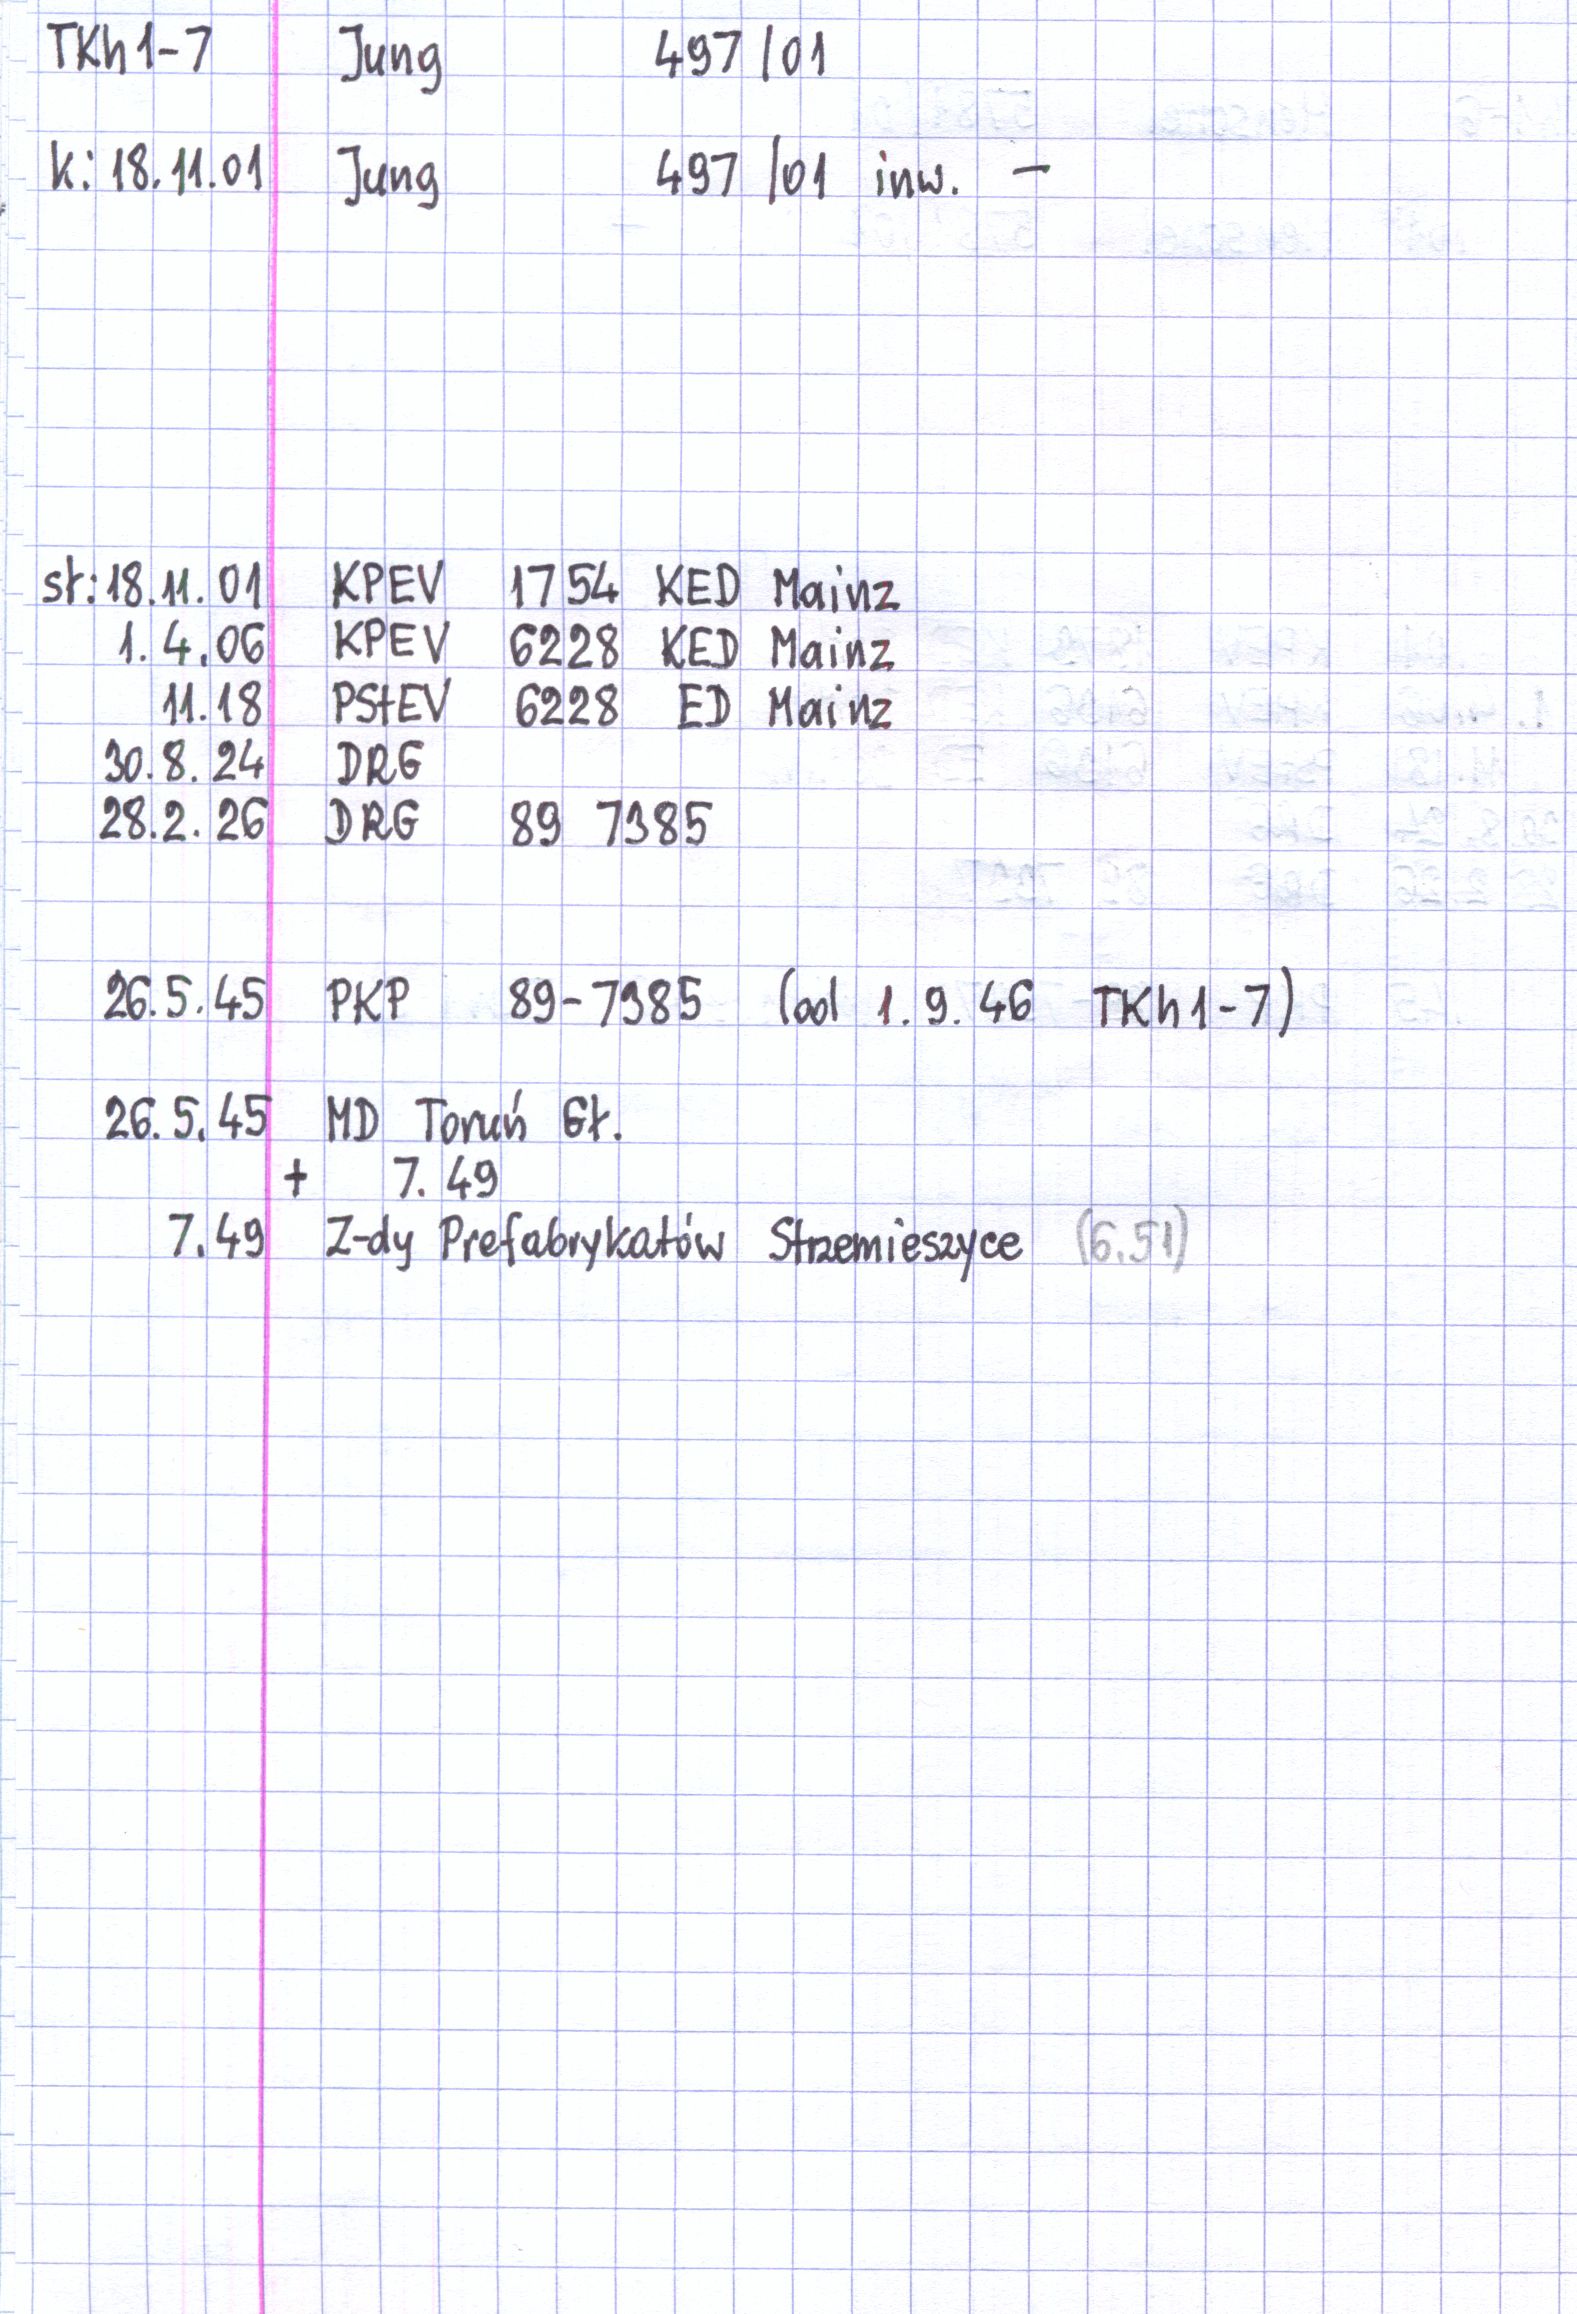 TKh1-7 Jung 497/01
k: 18.11.01 Jung 497/01 inw. –
st: 18.11.01 KPEV 1754 KED Mainz
1.4.06 KPEV 6228 KED Mainz
11.18 PStEV 6228 ED Mainz
30.8.24 DRG
28.2.26 DRG 89 7385
26.5.45 PKP 89-7385 (od 1.9.46 TKh1-7)
26.5.45 MD Toruń Gł.
+ 7.49
7.49 Z-dy Prefabrykatów Strzemieszyce (6.51)